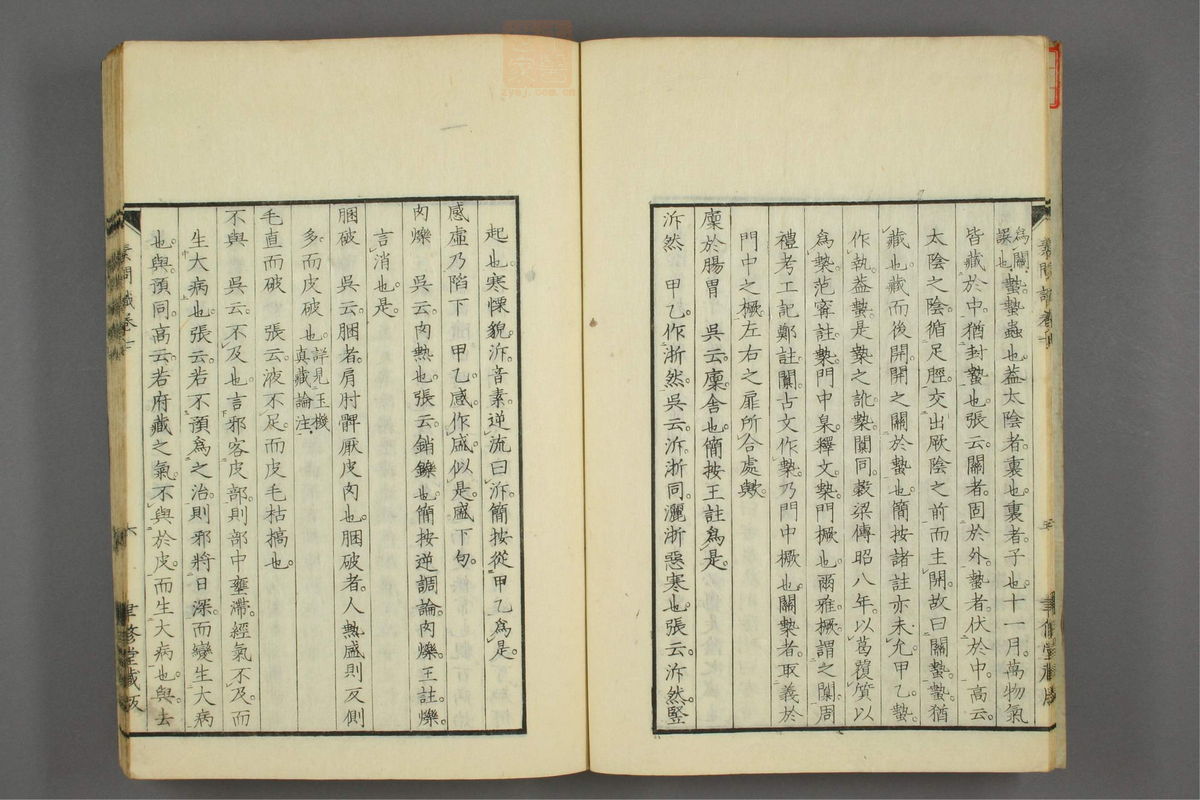 為關。
誤也。蟄。蟄蟲也。蓋太陰者裏也。裏者子也。十一月。萬物氣
皆藏於中。猶封蟄也。張云。關者。固於外。蟄者。伏於中。高云。
太陰之陰。循足脛。交出厥陰之前。而主開。故曰關蟄。蟄猶
藏也。藏而後開。開之關於蟄也。簡按諸註亦未允。甲乙。蟄。
作執。蓋蟄是槷之訛。槷闑同。穀梁傳昭八年。以葛覆質以
為槷。范甯註。槷。門中臬。釋文。槷。門橛也。爾雅。橛謂之闑。周
禮考工記鄭註。闑。古文作槷。乃門中橛也。關槷者。取義於
門中之橛。左右之扉所合處歟。
廩於腸胃 吳云。廩舍也。簡按王註為是。
泝然 甲乙。作淅然。吳云。泝。淅同。灑淅惡寒也。張云。泝然。竪
起也。寒慄貌。泝。音素。逆流曰泝。簡按從甲乙為是。
感虛乃陷下 甲乙。感。作盛。似是。盛下句。
肉爍 吳云。肉熱也。張云。銷鑠也。簡按逆調論。肉爍。王註。爍。
言消也。是。
䐃破 吳云。䐃者。肩肘髀厭皮肉也。䐃破者。人熱盛則反側
多。而皮破也。詳見玉機
真藏論注。
毛直而破 張云。液不足。而皮毛枯槁也。
不與 吳云。不及也。言邪客皮部。則部中壅滯。經氣不及而
生大病也。張云。若不預為之治。則邪將日深。而變生大病
也。與。預同。高云。若府藏之氣。不與於皮。而生大病也。與。去
素問識卷七
六
聿修堂藏板